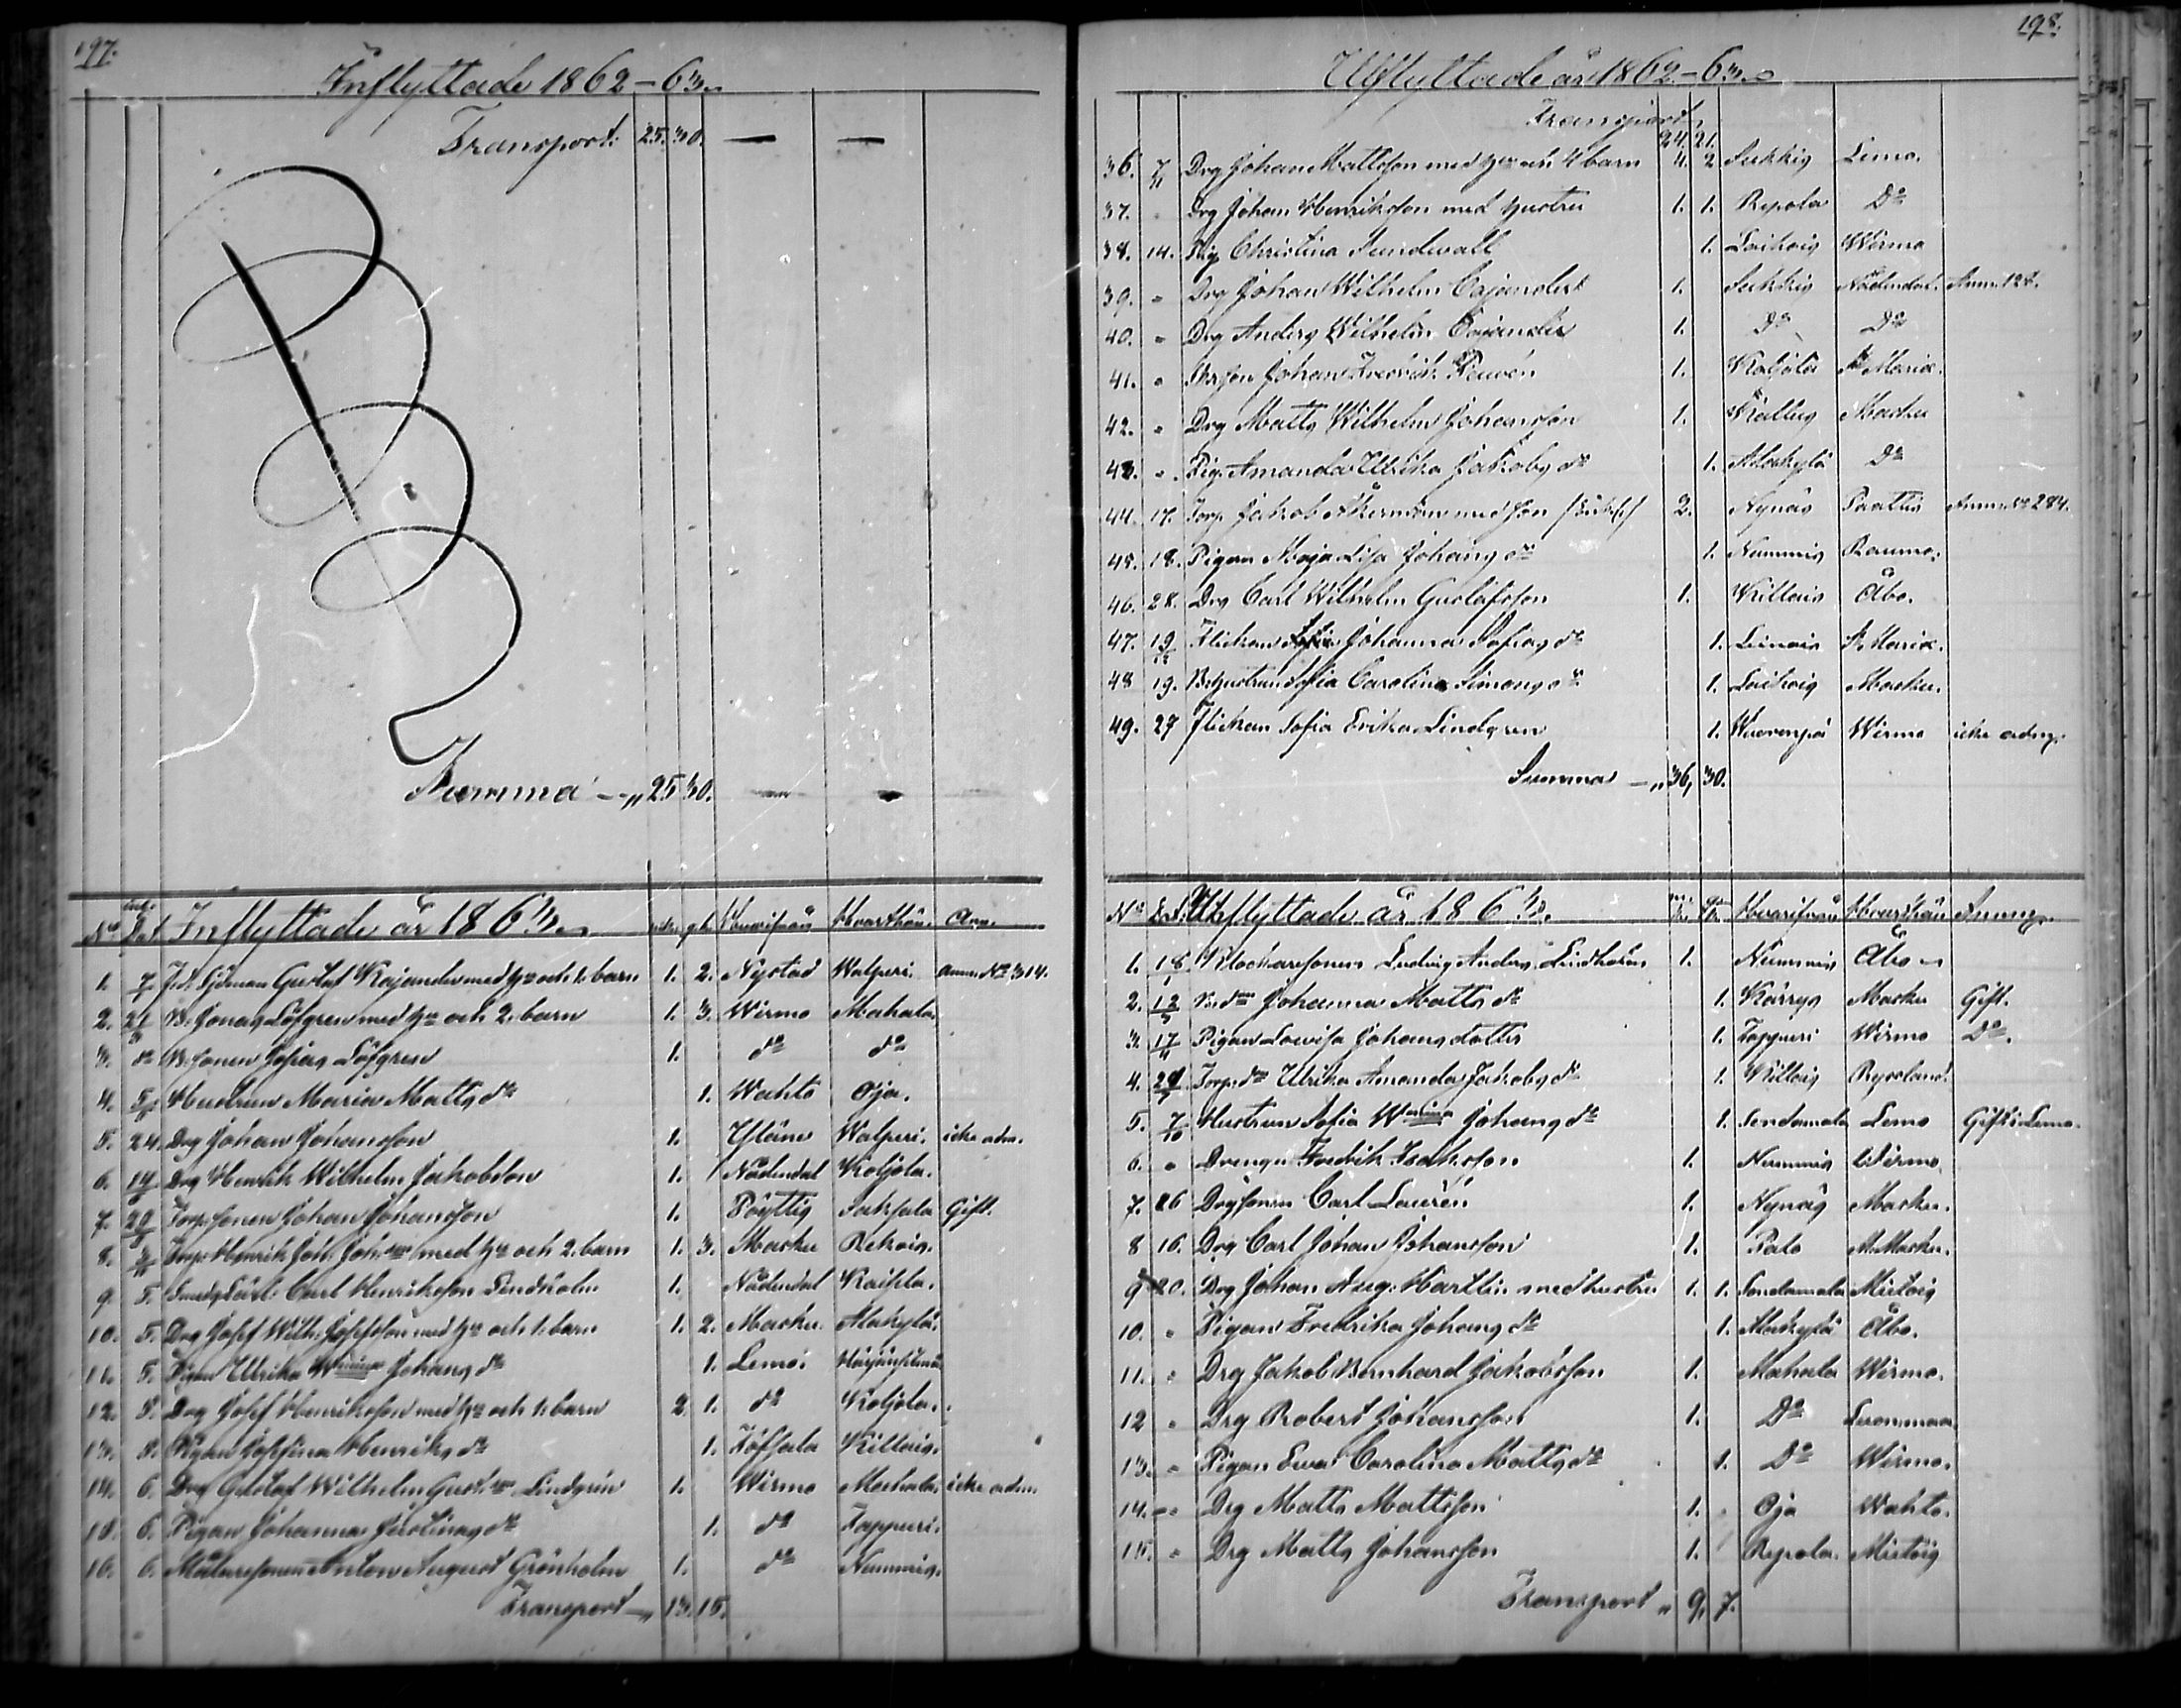 197.
Inflyttade 1862-63.
Transport: 25. 30. — —
Summa — „ 25 30. —
No Dat Inflyttade år 1863. mk. qk. Hvarifrån Hvarthän. Anm.
1. 7. Gustaf Kajander med hu och 1 barn 1. 2. Nystad Walperi. Anm. No 314.
2. 21/3 B. Jonas Löfgren med hu och 2. barn 1. 3. Wirmo Mahala.
3. do B. sonen Josias Löfgren 1. do do
4. Hustrun Maria Matts dr 1. Wahto Oja.
5. 24. Drg Johan Johansson 1. Yläne Walperi. icke adm.
6. Drg Henrik Wilhelm Jakobsson 1. Nådendal Koljola.
7. 29 Torp. sonen Johan Johansson 1. Pöyttis Saksala Gift.
8. Torp. Henrik Joh. Joh.son med hu och 2. barn 1. 3. Masku Rekois.
9. 5. Carl Henriksson Lindholm 1. Nådendal Kaihla.
10. 5. Drg Josef Wilh. Josefsson med hu och 1. barn 1. 2. Masku. Alakylä.
11. 5. Pigan Ulrika W Johans dr 1. Lemo.
12. 5. Drg Josef Henriksson med hu och 1. barn 2 1. do Koljola.
13. 5. Pigan Josefina Henriks dr 1. Töfsala Killais.
14. 6. Drg Gustaf Wilhelm Gust.son Lindgrén 1. Wirmo Mahala. icke adm.
15. 6. Pigan Johanna dr 1. do Tappuri.
16. 6. Målaresonen Anton August Grönholm 1. do Nummis.
Transport — „ 13. 15.
198.
Utflyttade år 1862-63.
Transport 24. 21.
36. 7/11 Drg Johan Mattsson med hu och 4 barn 4. 2. Sukkis Lemo.
37. Drg Johan Henriksson med hustru 1. 1. Repola Do
38. 14. Pig. Christina Sundwall 1. Laihois Wirmo
39. " Drg Johan Wilhelm Cajander 1. Sukkis Nådendal. Anm. 127.
40. " Drg Anders Wilhelm Cajander 1. Do Do
41. " Johan Fredrik 1. Koljola St Mariæ.
42. " Drg Matts Wilhelm Johansson 1. Masku
43. " Pig. Amanda Ulrika Jakobs dr 1. Alakylä Do
44. 17. Torp. Jakob Åkerman med son 2. Nynäs Paattis Anm. No 284.
45. 18. Pigan Maja Lisa Johans dr 1. Nummis Raumo.
46. 28. Drg Carl Wilhelm Gustafsson 1. Killais Åbo.
47. 19/12 Flickan Johanna Sofias dr 1. Leinais St Mariæ.
48 19. B. hustrun Sofia Carolina Simons dr 1. Laihois Masku.
49. 27 Flickan Sofia Erika Lindgren 1. Wuorenpä Wirmo icke adm.
Summa — „ 36, 30.
No Dat. Utflyttade år 1863. Hvarifrån Hvarthän Anmg.
1. 18/1 Klockaresonen Ludvig Anders Lindholm 1. Nummis Åbo
2. 12/3 Johanna Matts dr 1. Kärrys Masku Gift.
3. 17 Pigan Lovisa Johansdotter 1. Tappuri Wirmo Do.
4. Torp. dr Ulrika Amanda Jakobs dr 1. Killais Rysoland.
5. 7/10 Hustrun Sofia W Johans dr 1. Sondamala Lemo Gift i Lemo.
6. " Drengen Fredrik Isaksson 1. Nummis Wirmo.
7. 16 Drgsonen Carl Laurén 1. Nynäs Masku.
8 16. Drg Carl Johan Johansson 1. Palo Masku.
9 20. Drg Johan Aug. Härtlin med hustru 1. 1. Sondamala Mietois
10. " Pigan Fredrika Johans dr 1. Alakylä Åbo.
11. " Drg Jakob Bernhard Jakobsson 1. Mahala Wirmo.
12 " Drg Robert Johansson 1. Do
13. " Pigan Eva Carolina Matts dr 1. Do Wirmo.
14. " Drg Matts Mattsson 1. Oja Wahto.
15. " Drg Matts Johansson 1. Repola. Mietois
Transport „ 9, 7.